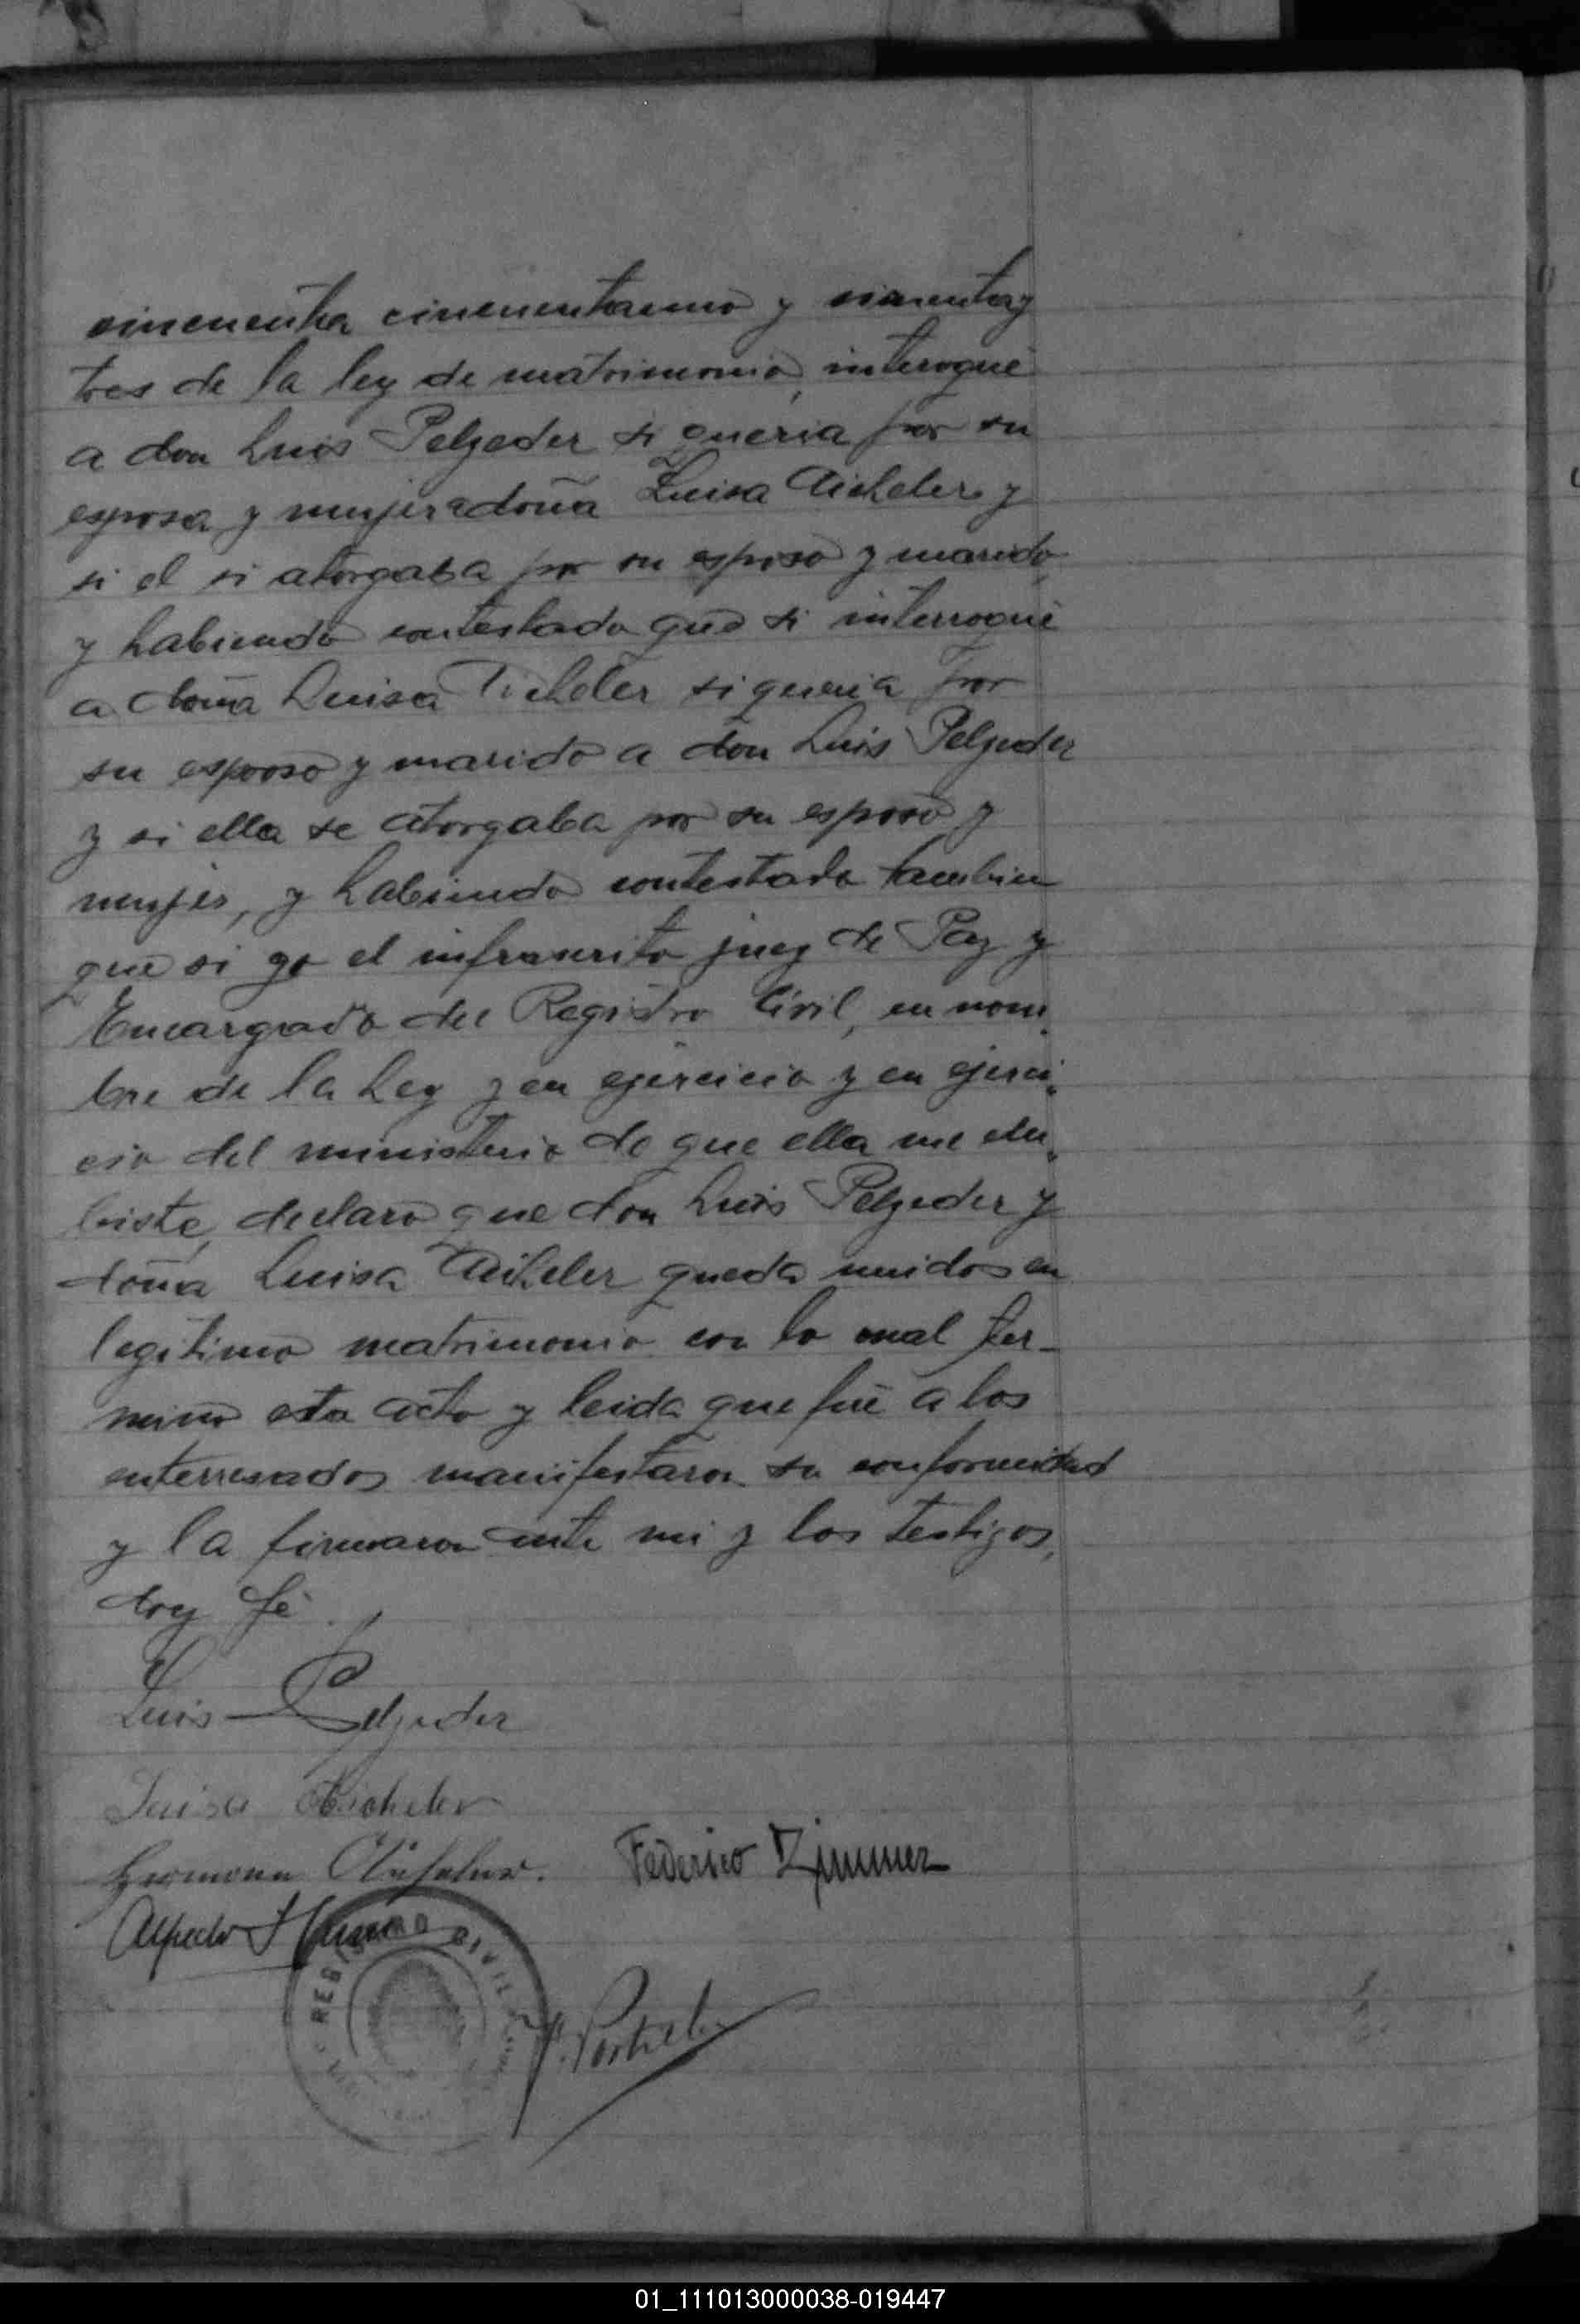 cincuenta cincuentauno y cincuentay
tres de la ley de matrimonio, interogué
a don Luis Pelzeder si queria por su
esposa y mujer a doña Luisa Aicheler y
si el si atorgaba por su esposo y marido
y habiendo contestado que si interrogué
a doña Luisa Aicheler si queria por
su esposo y marido a don Luis Pelzeder
y si ella se atorgaba por su esposo y
mujer, y habiendo contestado tambien
que si yo el infrascrito juez de Paz y
Encargado del Registro Civil, en nom
bre de la Ley y en ejercicio y en ejerci
cio del ministerio de que ella me
declaro que don Luis Pelzeder y
doña Luisa Aicheler queda unidos en
legitimo matrimonio con lo cual ter-
mino esta acta y leida que fué a los
enterresados manifestaron su conformidad
y la firmaron ante mi y los testigos,
doy fé.
Luis Pelzeder
Luisa Aicheler
Hermann Aicheler. Federico Zimmer
Alfredo
REGISTRO CIVIL
01_111013000038-019447